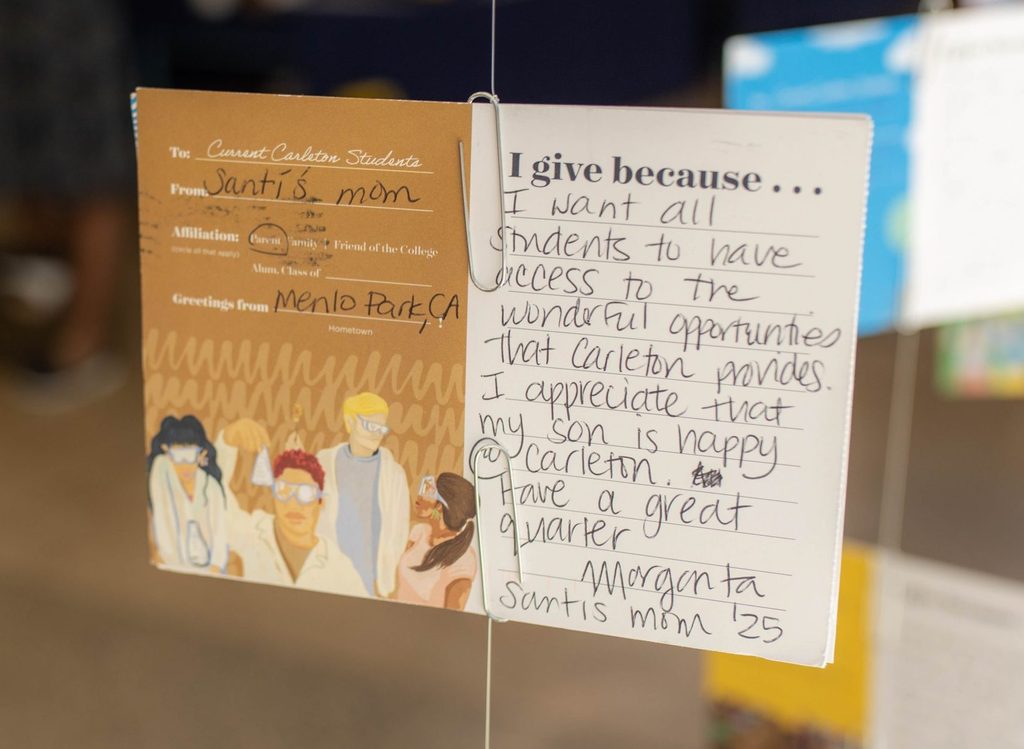 To: Current Carleton Students
From: Santi's mom
Affiliation: Parent Family Friend of the College
(circle all that apply)
Alum, Class of
Greetings from Menlo Park, CA !
Hometown
I give because . . .
I want all
students to have
access to the
wonderful opportunties
that Carleton provides.
I appreciate that
my son is happy
@ Carleton.
Have a great
quarter
Santis mom '25